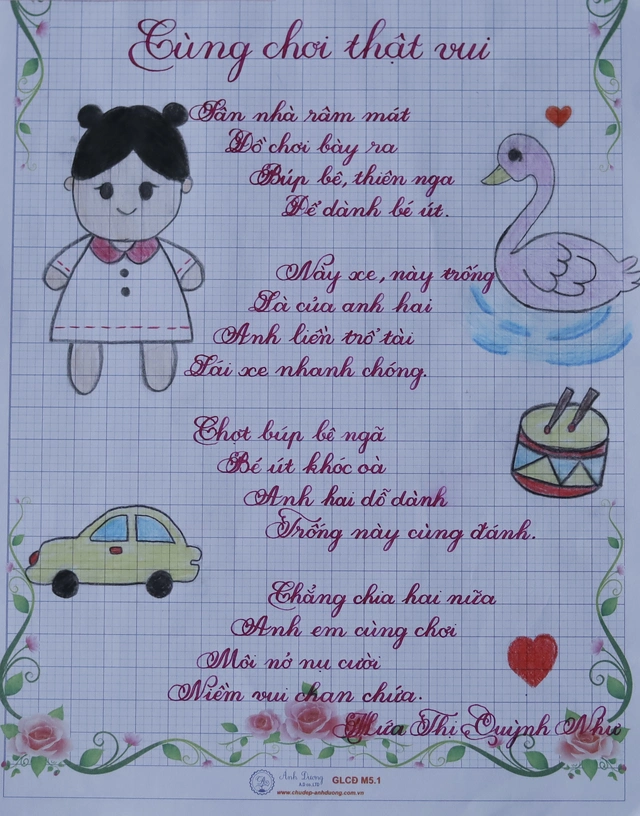 Cùng chơi thật vui
Sân nhà râm mát
Đồ chơi bày ra
Búp bê, thiên nga
Để dành bé út.
Này xe, này trống
Là của anh hai
Anh liền trổ tài
Lái xe nhanh chóng.
Chợt búp bê ngã
Bé út khóc oà
Anh hai dỗ dành
Trống này cùng đánh.
Chẳng chia hai nữa
Anh em cùng chơi
Môi nở nụ cười
Niềm vui chan chứa.
Hứa Thị Quỳnh Như
Ánh Dương
GLCĐ M5.1
www.chudep-anhduong.com.vn